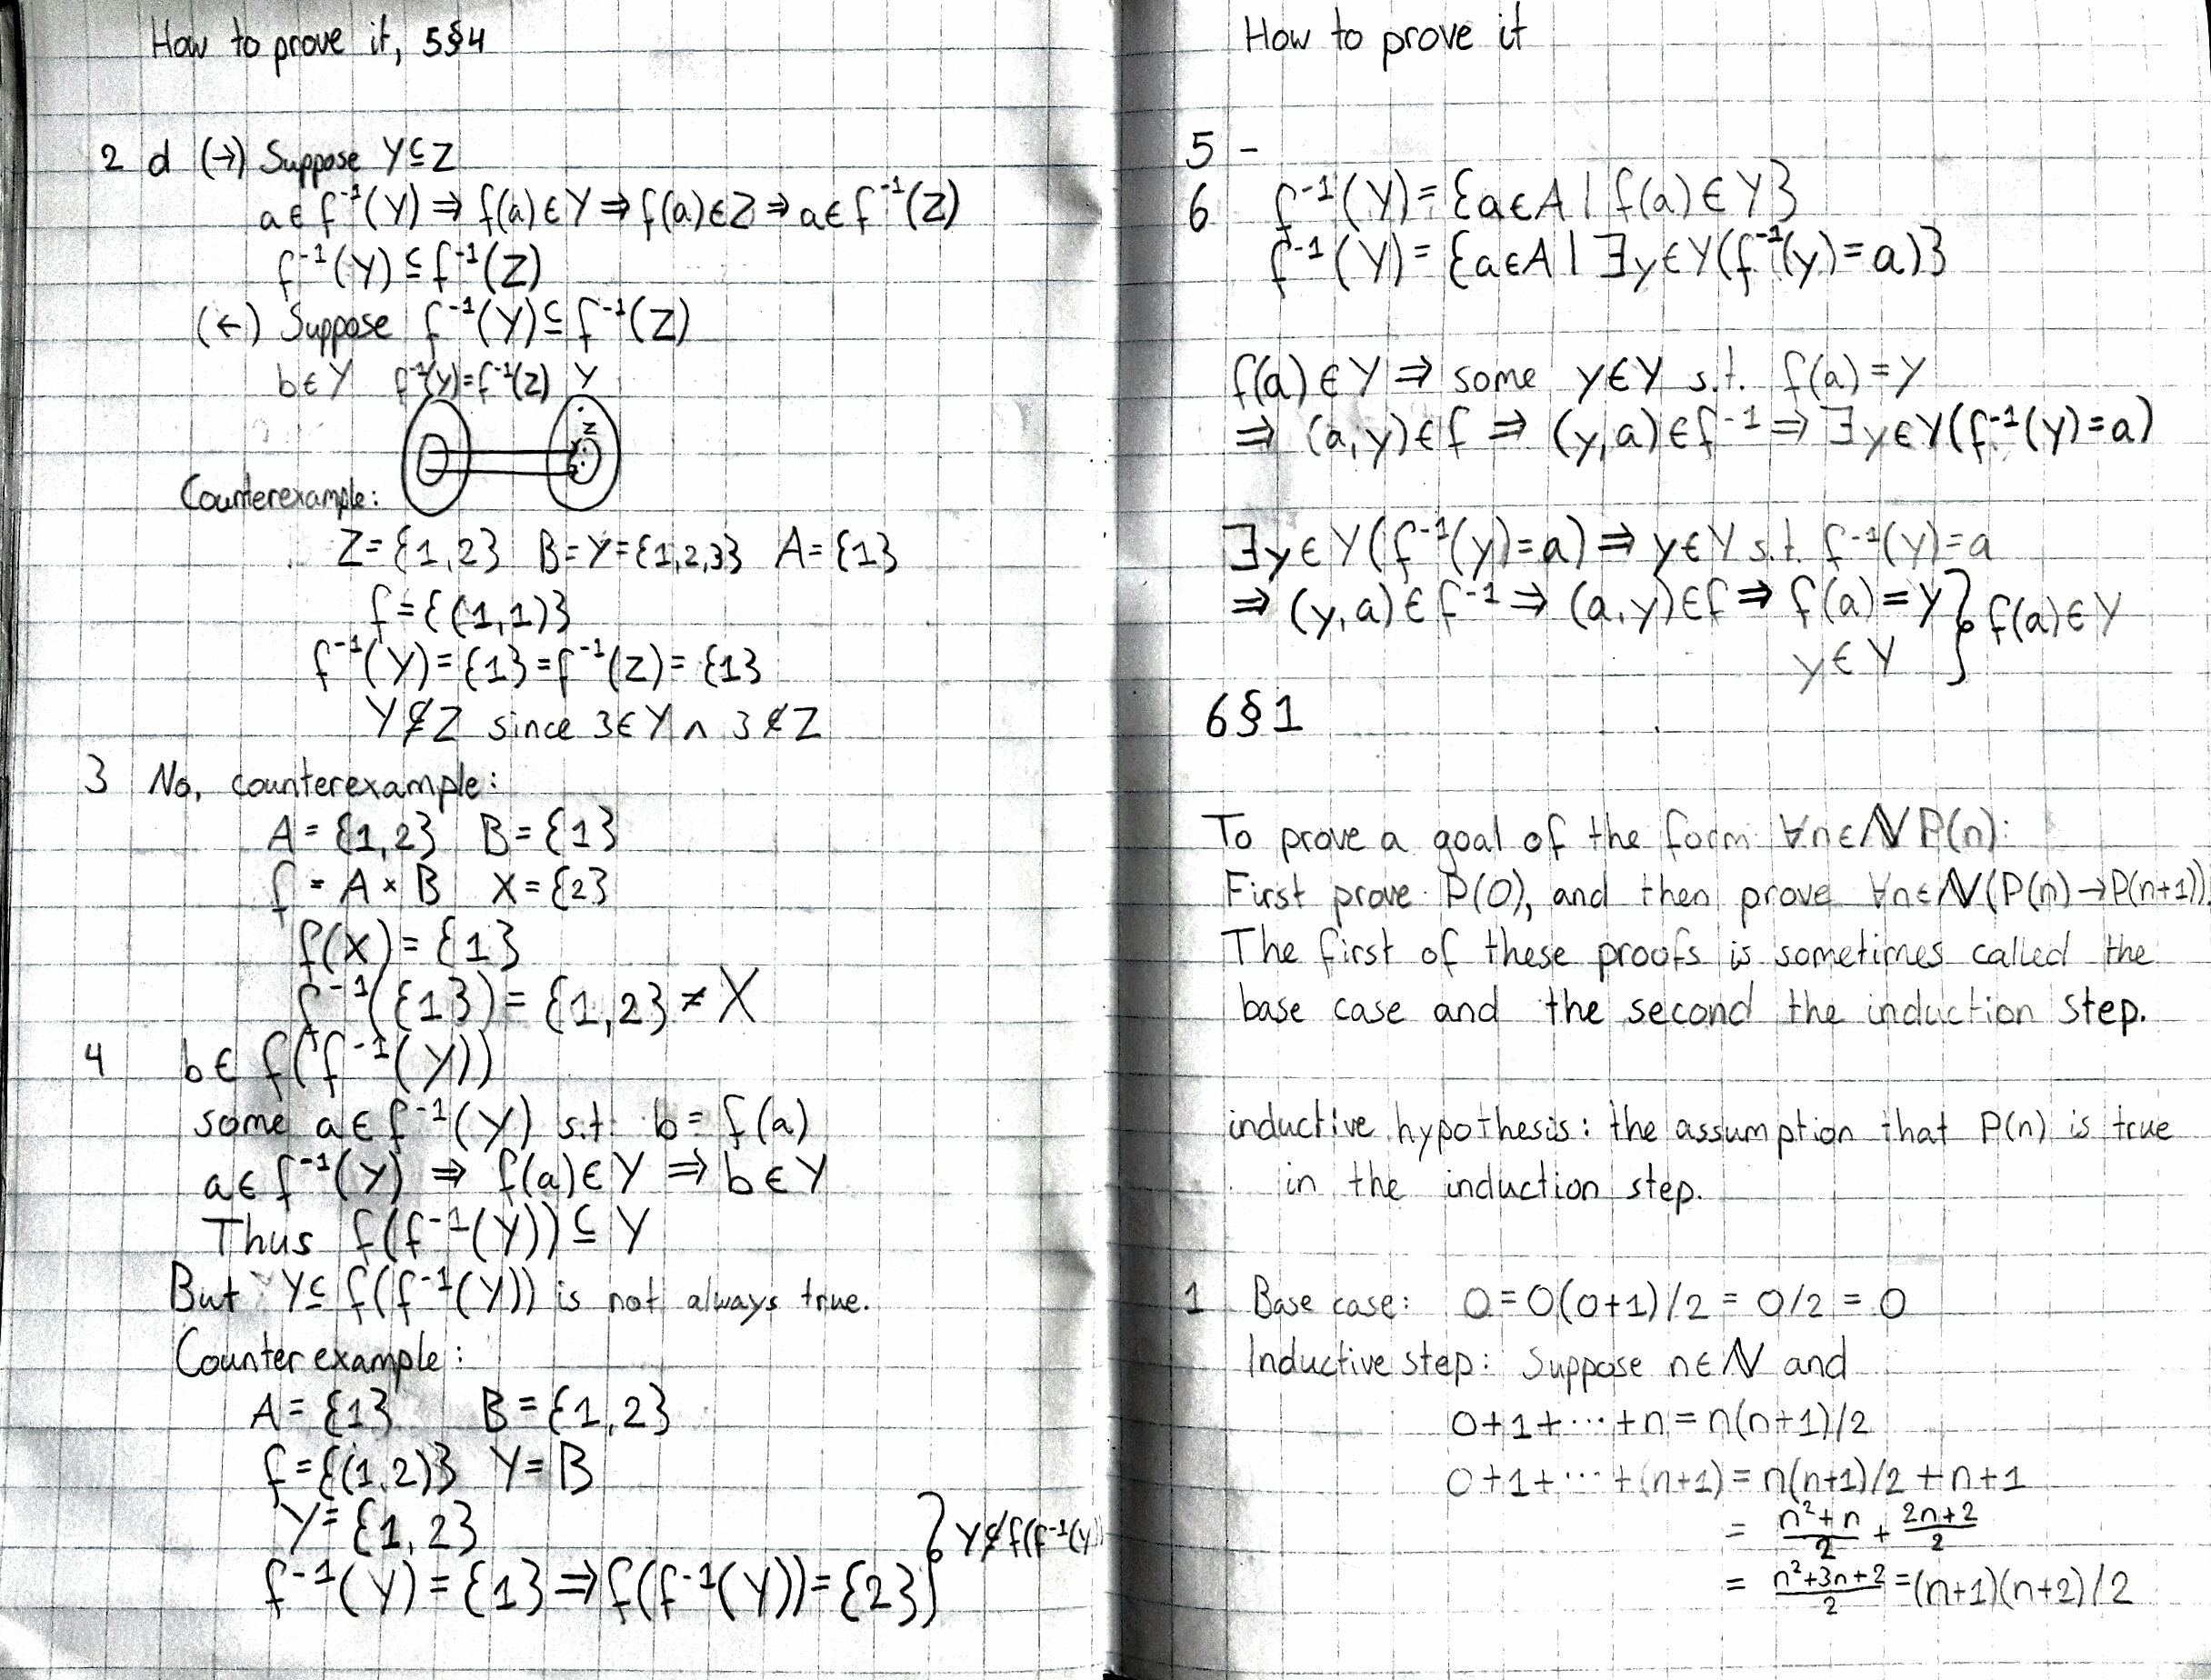 How to prove it, 5§4
2 d (→) Suppose Y⊆Z
a∈f⁻¹(Y) ⇒ f(a)∈Y ⇒ f(a)∈Z ⇒ a∈f⁻¹(Z)
f⁻¹(Y)⊆f⁻¹(Z)
(←) Suppose f⁻¹(Y)⊆f⁻¹(Z)
b∈Y f⁻¹(Y)=f⁻¹(Z) Y
Z
Counterexample:
Z={1,2} B=Y={1,2,3} A={1}
f={(1,1)}
f⁻¹(Y)={1}=f⁻¹(Z)={1}
Y⊈Z since 3∈Y ∧ 3∉Z
3 No, counterexample:
A={1,2} B={1}
f = A×B X={2}
f(X)={1}
f⁻¹({1})={1,2}≠X
4 b∈f(f⁻¹(Y))
some a∈f⁻¹(Y) s.t. b=f(a)
a∈f⁻¹(Y) ⇒ f(a)∈Y ⇒ b∈Y
Thus f(f⁻¹(Y))⊆Y
But Y⊆f(f⁻¹(Y)) is not always true.
Counter example:
A={1} B={1,2}
f={(1,2)} Y=B
Y={1,2}
f⁻¹(Y)={1}⇒f(f⁻¹(Y))={2} } Y⊈f(f⁻¹(Y))
How to prove it
5 -
6 f⁻¹(Y)={a∈A | f(a)∈Y}
f⁻¹(Y)={a∈A | ∃y∈Y(f⁻¹(y)=a)}
f(a)∈Y ⇒ some y∈Y s.t. f(a)=y
⇒ (a,y)∈f ⇒ (y,a)∈f⁻¹ ⇒ ∃y∈Y(f⁻¹(y)=a)
∃y∈Y(f⁻¹(y)=a) ⇒ y∈Y s.t. f⁻¹(y)=a
⇒ (y,a)∈f⁻¹ ⇒ (a,y)∈f ⇒ f(a)=y } f(a)∈Y
y∈Y
6§1
To prove a goal of the form ∀n∈ℕ P(n):
First prove P(0), and then prove ∀n∈ℕ(P(n)→P(n+1)).
The first of these proofs is sometimes called the
base case and the second the induction step.
inductive hypothesis: the assumption that P(n) is true
in the induction step.
1 Base case: 0=0(0+1)/2=0/2=0
Inductive step: Suppose n∈ℕ and
0+1+⋯+n=n(n+1)/2
0+1+⋯+(n+1)=n(n+1)/2+n+1
= (n²+n)/2 + (2n+2)/2
= (n²+3n+2)/2 =(n+1)(n+2)/2